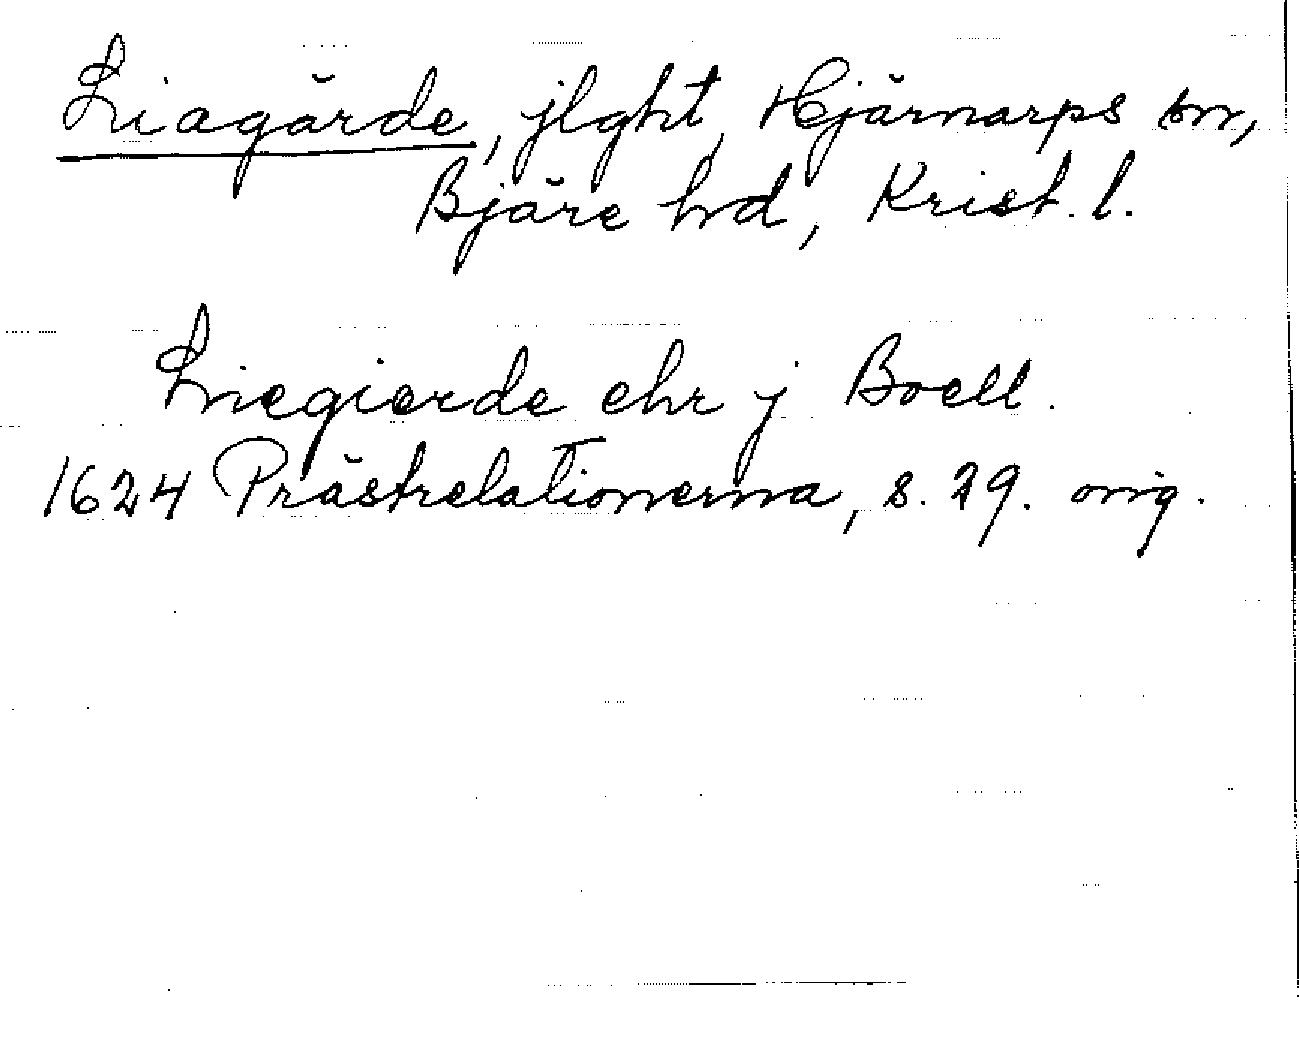 Liagärde, jlght, Hjärnarps sn,
Bjäre hd, Krist. l.
Liegierde ehr j Boell.
1624 Prästrelationerna, s. 29. orig.